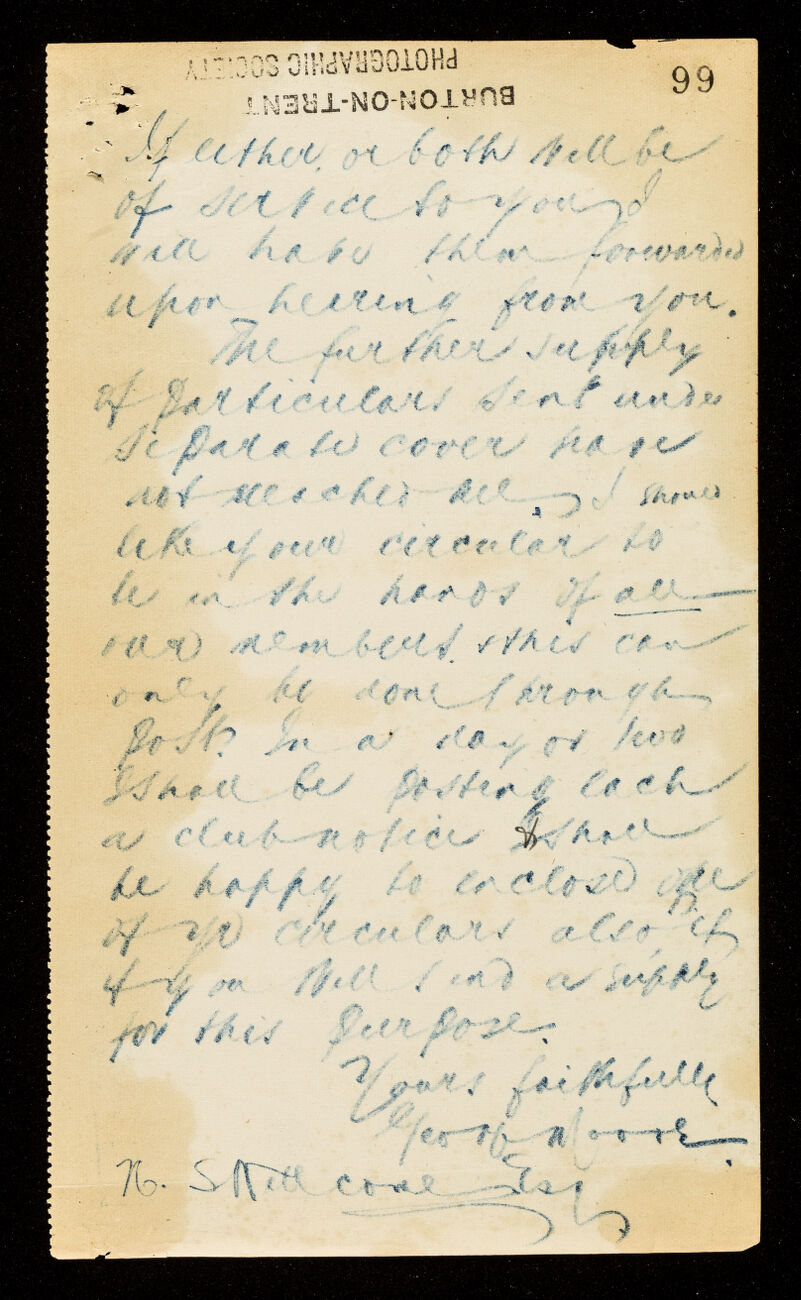 PHOTOGRAPHIC SOCIETY
BURTON-ON-TRENT
99
If either or both will be
of service to you I
will have them forwarded
upon hearing from you.
The further supply
of particulars sent under
separate cover have
not reached me, I should
like your circular to
be in the hands of all
our members & this can
only be done through
post. In a day or two
I shall be posting each
a club notice & I shall
be happy to enclose one
of yr circulars also
if you will send a supply
for this purpose.
Yours faithfully
Esq